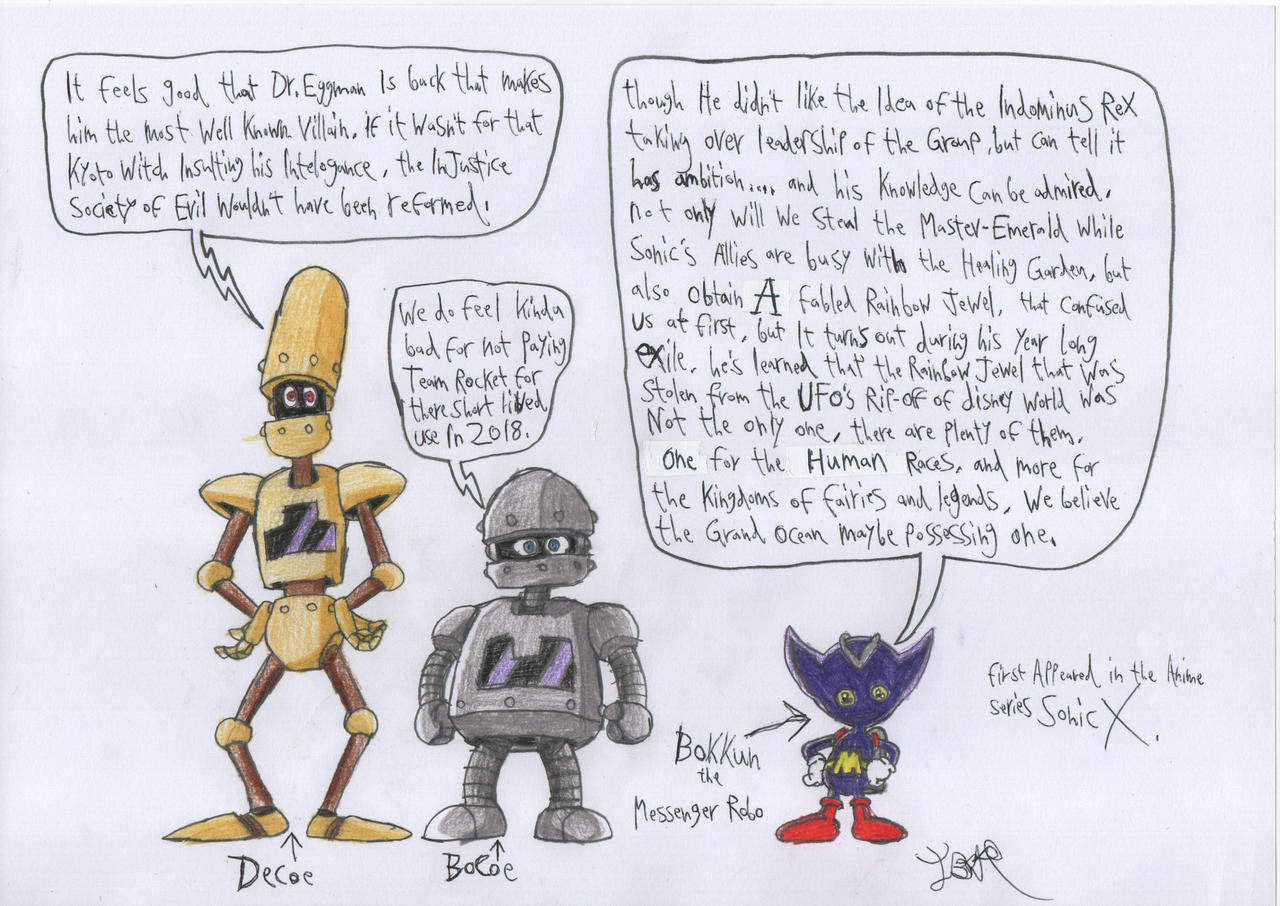 It feels good that Dr. Eggman Is back that makes
him the most Well Known Villain. If it wasn't for that
Kyoto Witch Insulting his Intelogance, the InJustice
Society of Evil Wouldn't have been reformed.
We do feel Kinda
bad for not Paying
Team Rocket for
there short lived
use In 2018.
though He didn't like the Idea of the Indominus Rex
taking over leadership of the Group, but can tell it
has ambition.... and his Knowledge Can be admired.
Not only will We Steal the Master-Emerald While
Sonic's Allies are busy With the Healing Garden, but
also Obtain A fabled Rainbow Jewel, that confused
Us at first, but It turns out during his Year long
exile, he's learned that the Rainbow Jewel that was
Stolen from the UFO's Rip-off of disney World was
Not the only one, there are plenty of them.
One for the Human Races, and more for
the Kingdoms of fairies and legends, We believe
the Grand Ocean maybe possessing one.
first Appeared in the Anime
series Sonic X.
BoKKun
the
Messenger Robo
Decoe
Bocoe